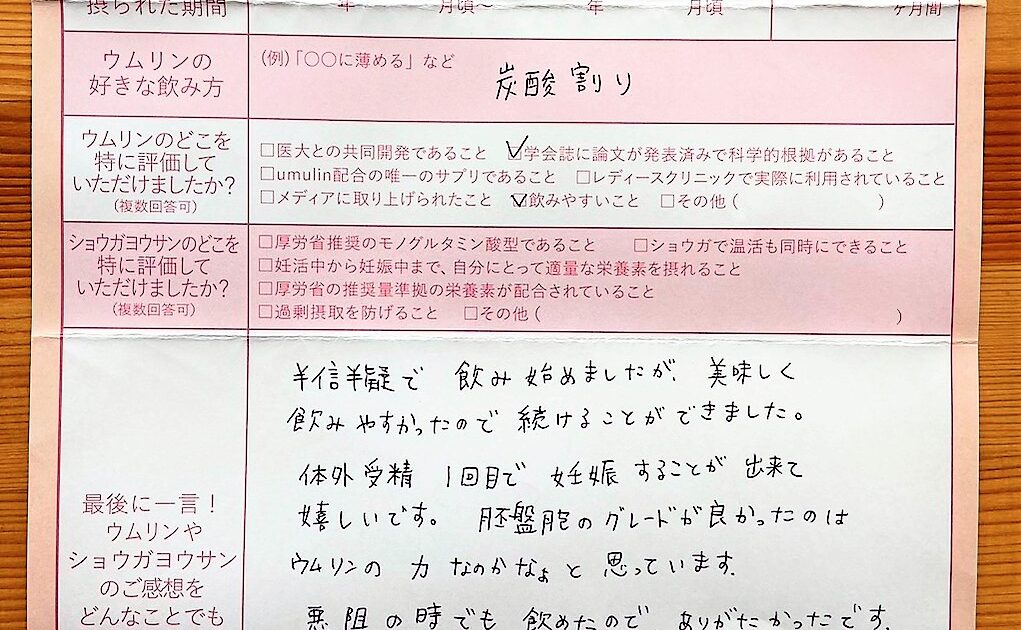 摂られた期間 年 月頃〜 年 月頃 ヶ月間
ウムリンの
好きな飲み方
(例)「○○に薄める」など
炭酸割り
ウムリンのどこを
特に評価して
いただけましたか?
(複数回答可)
□医大との共同開発であること ☑学会誌に論文が発表済みで科学的根拠があること
□umulin配合の唯一のサプリであること □レディースクリニックで実際に利用されていること
□メディアに取り上げられたこと ☑飲みやすいこと □その他( )
ショウガヨウサンのどこを
特に評価して
いただけましたか?
(複数回答可)
□厚労省推奨のモノグルタミン酸型であること □ショウガで温活も同時にできること
□妊活中から妊娠中まで、自分にとって適量な栄養素を摂れること
□厚労省の推奨量準拠の栄養素が配合されていること
□過剰摂取を防げること □その他( )
最後に一言!
ウムリンや
ショウガヨウサン
のご感想を
どんなことでも
半信半疑で 飲み始めましたが、美味しく
飲みやすかったので 続けることができました。
体外受精 1回目で 妊娠することが 出来て
嬉しいです。 胚盤胞のグレードが良かったのは
ウムリンの 力 なのかなぁ と 思っています。
悪阻の時でも 飲めたので ありがたかったです。